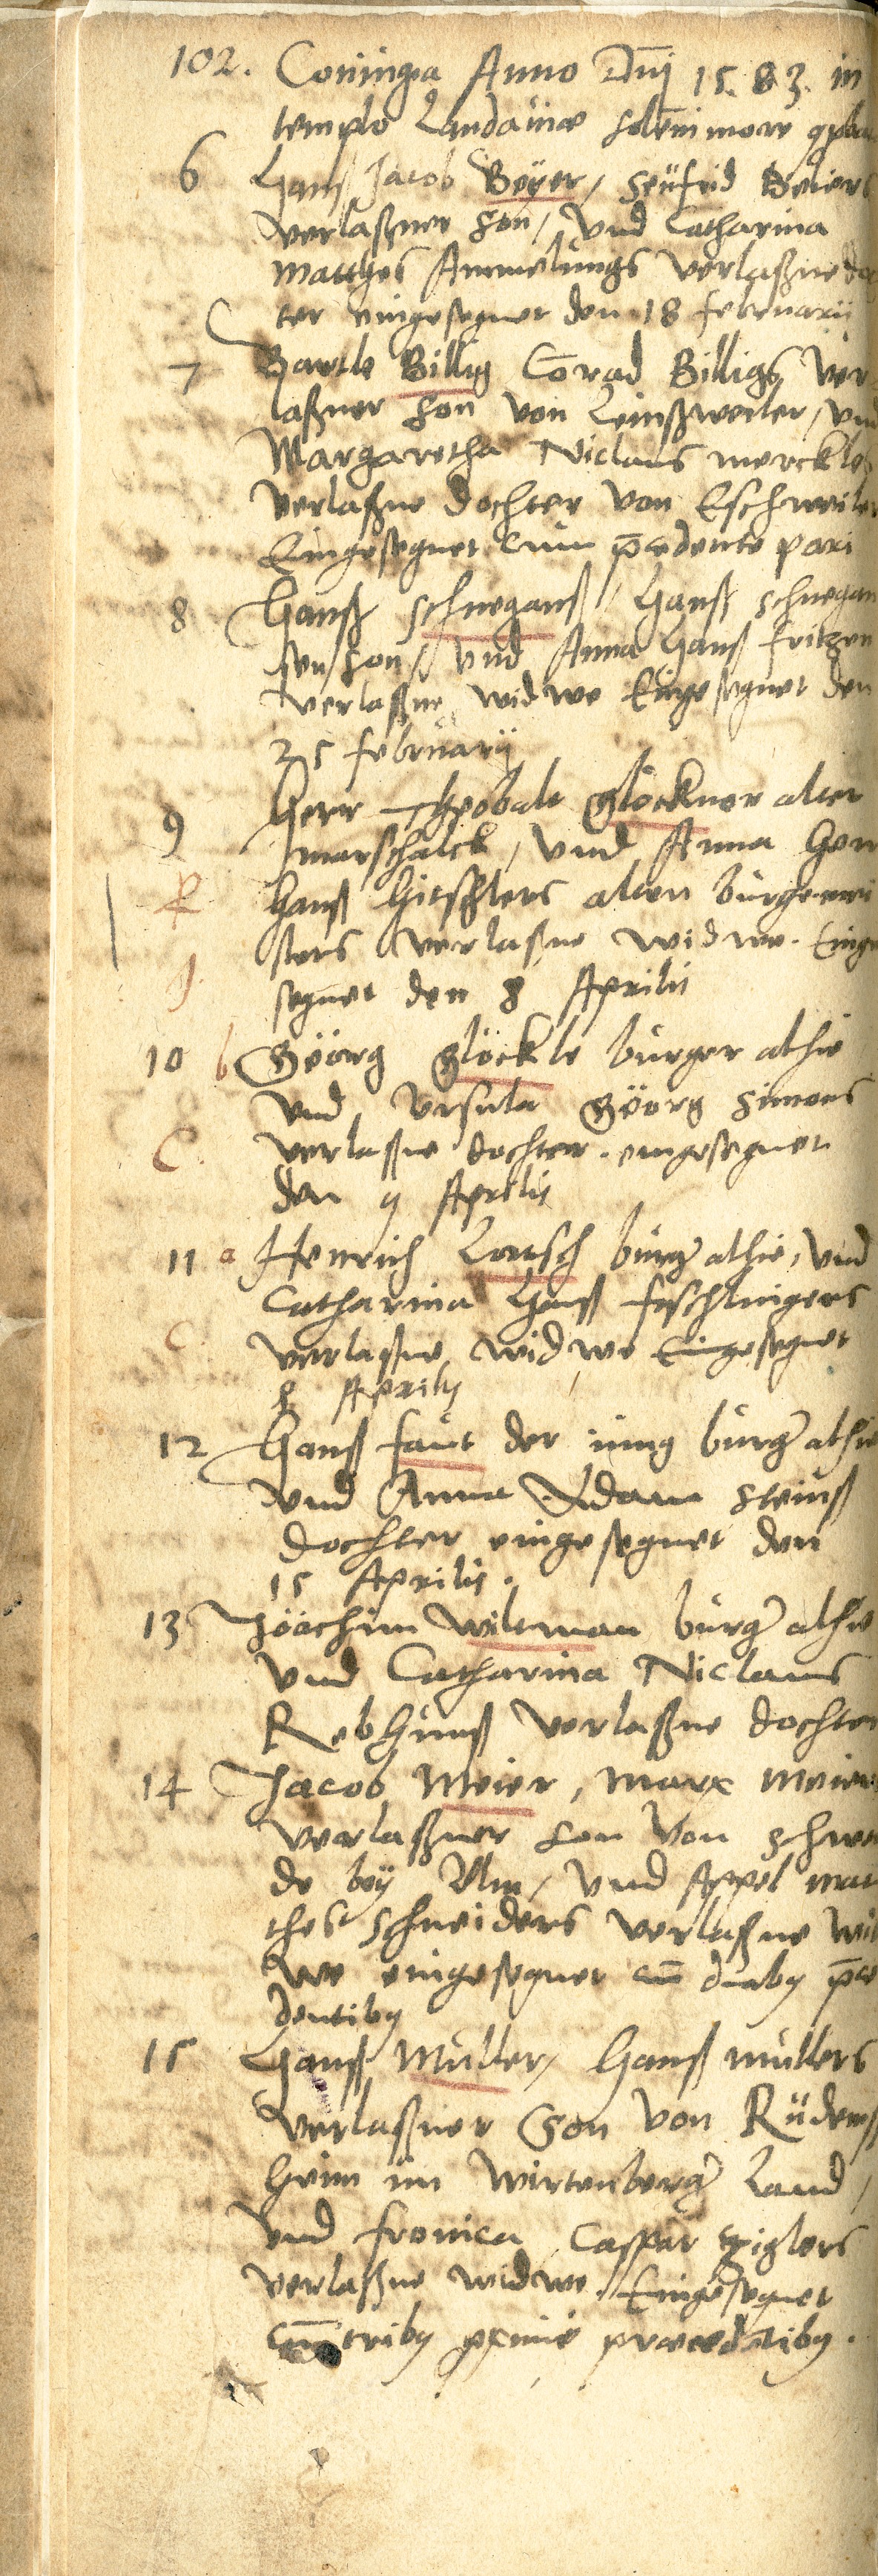 102. Coniugia Anno Dnj 1583. in
templo Landauiæ solenni more
6 Hanß Jacob Beyer / Seüfrid Beiers
verlaßner son / und Catharina
Matthes Ammelungs verlaßne doch
ter eingesegnet den 18 februarij
7 Bartle Billig Conrad Billigs ver
laßner son von Leinßweiler / und
Margaretha Niclaus merckles
verlaßne dochter von Eschweiler
Eingesegnet cum præcedente pari
8 Hanß schnegans / Hanß schnegan
sen son / und Anna Hanß fritzen
verlaßne widwe Eingesegnet den
25 februarij
9 Herr Theobalt glöckner alter
marschalck / und Anna Herr
R Hanß Hitschlers alten burgemei
sters verlaßne widwe. Einge
J. segnet den 8 Aprilis
10 b Geörg glöckle burger alhie
und Ursula Geörg Simons
C. verlaßne dochter. eingesegnet
den 9 Aprilis
11 a Henrich Lautsch burger alhie, und
Catharina Hanß feschlingers
C verlaßne widwe Eingesegnet
8 Aprilis
12 Hanß faut der iung burger alhie
und Anna Adam Steinß
dochter eingesegnet den
15 Aprilis.
13 Joachim wiltman burger alhie
und Catharina Niclaus
Rebhunß verlaßne dochter
14 Jacob Meier, Marx Meiers
verlaßner son von schwen
de bey Ulm / und Appel mat
thes schneiders verlaßne wid
we eingesegnet cum duabus præce
dentibus
15 Hanß Müller / Hanß müllers
verlaßner Son von Rüdeniß
heim im Wirtenberger Land /
und fronica Caspar ziglers
verlaßne widwe. Eingesegnet
cum tribus proxime præcedentibus.